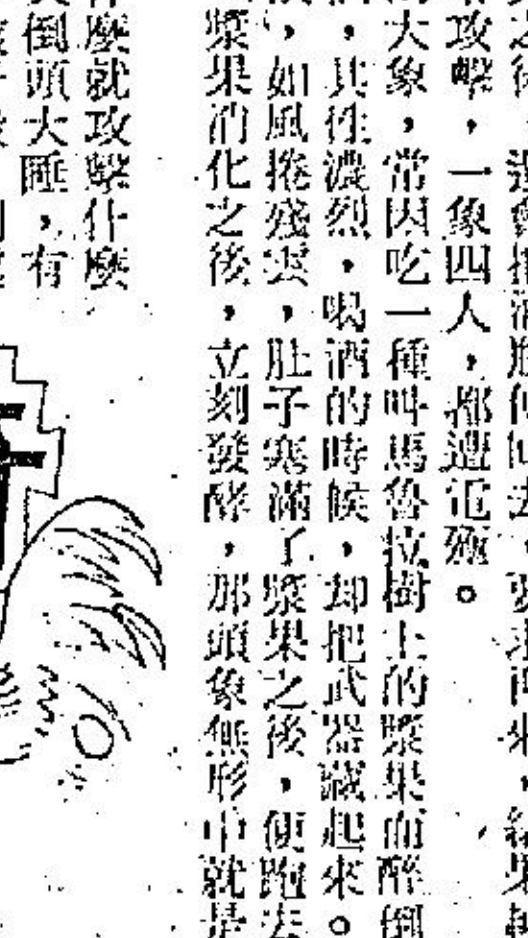 攻擊，一象四人，都遭電殛。
大象，常因吃一種叫馬魯拉樹上的漿果而醉倒
，其性濃烈，喝酒的時候，却把武器藏起來。
，如風捲殘雲，肚子塞滿了漿果之後，便跑去
漿果消化之後，立刻發酵，那頭象無形中就是
麼就攻擊什麼
倒頭大睡，有